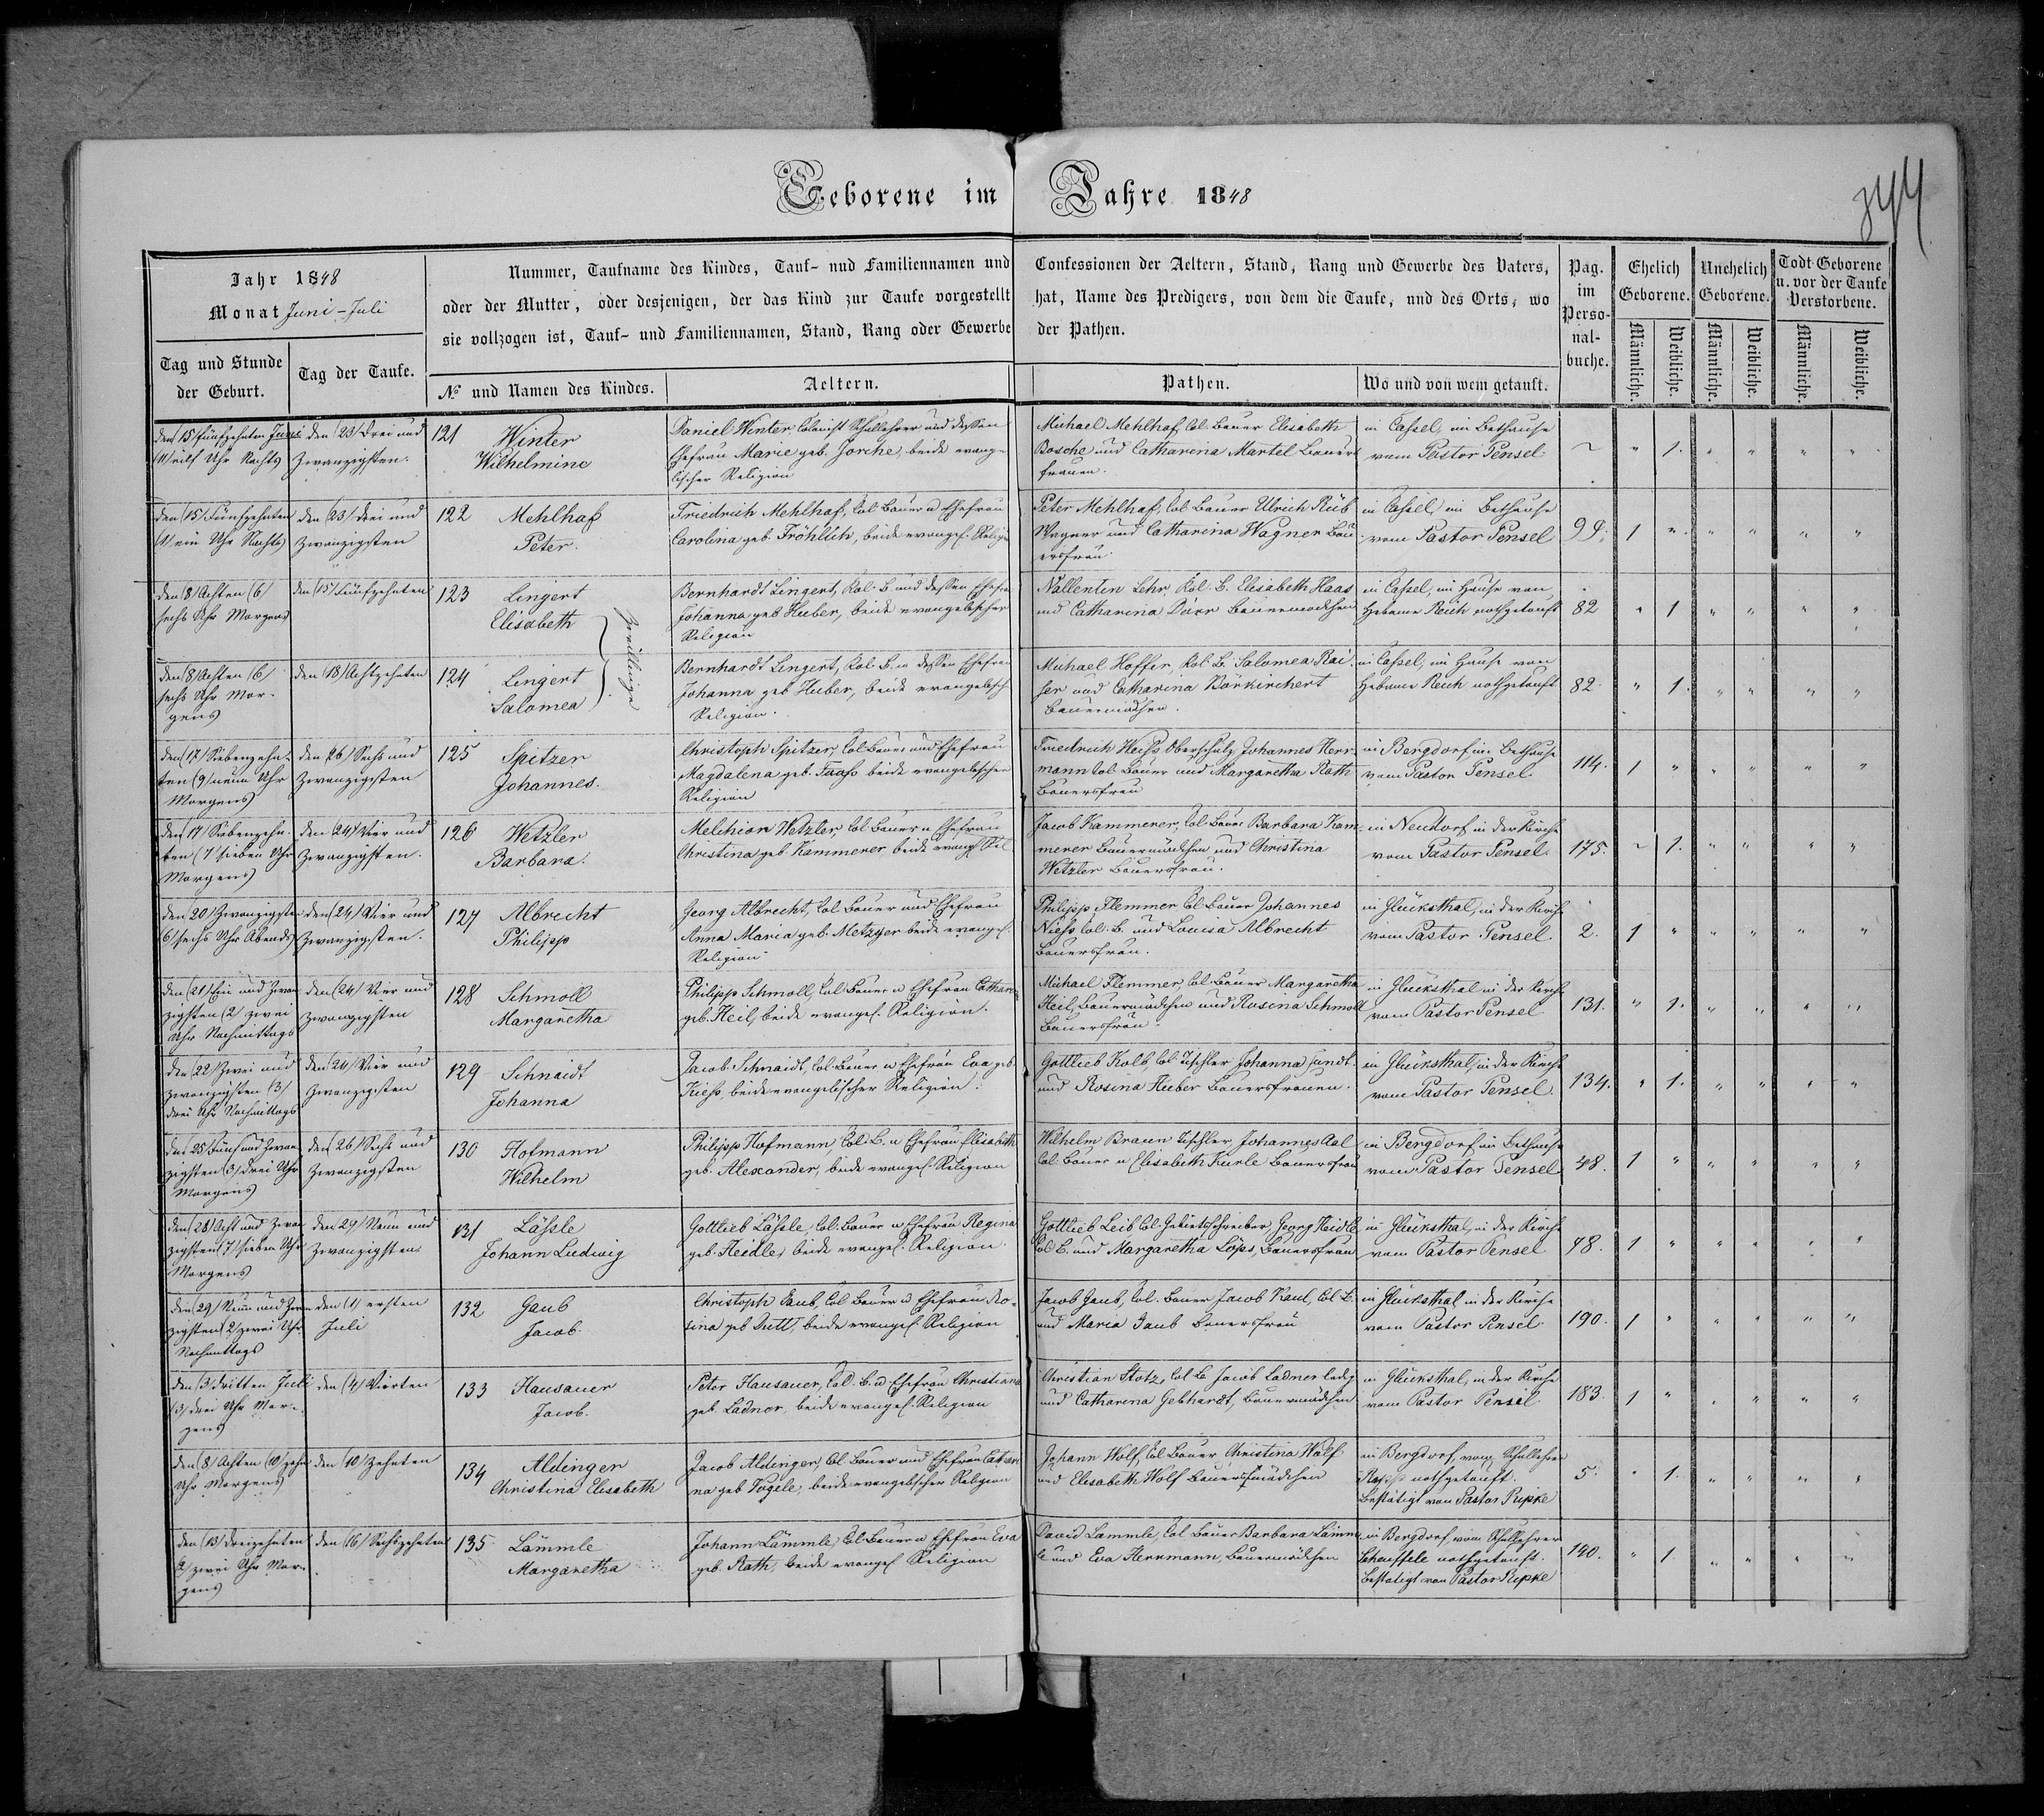 Geborene im Jahre 1848
344
Jahr 1848
Monat Juni - Juli
Tag und Stunde
der Geburt.
Tag der Taufe.
Nummer, Taufname des Kindes, Tauf- und Familiennamen und
oder der Mutter, oder desjenigen, der das Kind zur Taufe vorgestellt
sie vollzogen ist, Tauf- und Familiennamen, Stand, Rang oder Gewerbe
№ und Namen des Kindes.
Aeltern.
Confessionen der Aeltern, Stand, Rang und Gewerbe des Vaters,
hat, Name des Predigers, von dem die Taufe, und des Orts, wo
der Pathen.
Pathen.
Wo und von wem getauft.
Pag.
im
Perso-
nal-
buche.
Ehelich
Geborene.
Unehelich
Geborene.
Todt-Geborene
u. vor der Taufe
Verstorbene.
Männliche.
Weibliche.
Männliche.
Weibliche.
Männliche.
Weibliche.
den (15) fünfzehnten Juni
(11) eilf Uhr Nachts
den (23) Drei und
Zwanzigsten.
121 Winter
Wilhelmine
Daniel Winter Colonist Schullehrer und dessen
Ehefrau Marie geb. Jorche, beide evange-
lischer Religion
Michael Mehlhaf Col. Bauer Elisabeth
Bosche und Catharina Martel Bauers
frauen.
in Cassel im Bethause
vom Pastor Pensel
~ " 1. " " " "
den (15) Fünfzehnten
(1) ein Uhr Nachts
den (23) drei und
zwanzigsten
122 Mehlhaf
Peter.
Friedrich Mehlhaf, Col. Bauer u Ehefrau
Carolina geb. Fröhlich, beide evangel. Religi
Peter Mehlhaf, Col. Bauer Ulrich Rüb
Wagner und Catharina Wagner Bau-
ersfrau.
in Cassel, im Bethause
vom Pastor Pensel
99. 1 " " " " "
den (8) Achten (6)
sechs Uhr Morgens
den (15) Fünfzehnten
123 Lingert
Elisabeth
Zwillinge
Bernhardt Lingert, Kol. B. und dessen Ehefrau
Johanna geb Huber, beide evangelischer
Religion
Vallentin Lehr, Kol. B. Elisabeth Haas
und Catharina Dürr Bauermädchen
in Cassel, im Hause von
Hebame Reich nothgetauft
82 " 1 " " " "
den (8) Achten (6)
sechs Uhr Mor-
gens
den (18) Achtzehnten
124 Lingert
Salomea
Bernhardt Lingert, Kol. B. u dessen Ehefrau
Johanna geb Huber, beide evangelisch
Religion.
Michael Hoffer, Kol. B. Salomea Rai-
ser und Catharina Börkirchert
Bauermädchen.
in Cassel, im Hause von
Hebame Reich nothgetauft
82 " 1. " " " "
den (17) Siebenzehn-
ten (9) neun Uhr
Morgens
den (26) Sechs und
Zwanzigsten
125 Spitzer
Johannes.
Christoph Spitzer, Col. Bauer und Ehefrau
Magdalena geb. Faass beide evangelischer
Religion
Friedrich Heiss Oberschulz Johannes Herr-
mann Col. Bauer und Margaretha Rath
Bauersfrau
in Bergdorf im Bethause
vom Pastor Pensel
114. 1 " " " " "
den (17) Siebenzehn-
ten (7) sieben Uhr
Morgens
den (24) Vier und
Zwanzigsten.
126 Wetzler
Barbara.
Melchior Wetzler, Col Bauer u Ehefrau
Christina geb. Kammerer beide evang. Rel
Jacob Kammerer, Col. Bauer Barbara Kam-
merer Bauermädchen und Christina
Wetzler Bauersfrau.
in Neudorf in der Kirche
vom Pastor Pensel.
175. ~ 1. " " " "
den 20) Zwanzigsten
(6) sechs Uhr Abends
den (24) Vier und
Zwanzigsten.
127 Albrecht
Philipp
Georg Albrecht, Col. Bauer und Ehefrau
Anna Maria geb. Metzger beide evangel.
Religion
Philipp Flemmer Col. Bauer Johannes
Niess Col. B. und Louisa Albrecht
Bauersfrau.
in Glücksthal, in der Kirche
vom Pastor Pensel.
2. 1 " " " " "
den (21) Ein und Zwan
zigsten (2) zwei
Uhr Nachmittags
den (24) Vier und
zwanzigsten
128 Schmoll
Margaretha
Philipp Schmoll, Col. Bauer u Ehefrau Cathari
geb. Heil, beide evangel. Religion.
Michael Flemmer, Col. Bauer Margaretha
Heil, Bauermädchen und Rosina Schmoll
Bauersfrau.
in Glücksthal in der Kirche
vom Pastor Pensel
131. " 1. " " " "
den (22) Zwei und
zwanzigsten (3)
drei Uhr Nachmittags
den (24) Vier und
Zwanzigsten
129 Schnaidt
Johanna
Jacob Schnaidt, Col. Bauer u Ehefrau Eva geb.
Kiess, beide evangelischer Religion.
Gottlieb Kolb, Col. Tischler Johanna Jundt
und Rosina Huber Bauersfrauen.
in Glücksthal, in der Kirche
vom Pastor Pensel
134. " 1. " " " "
den 25) Fünf und Zwan
zigsten (3) drei Uhr
Morgens
den (26) Sechs und
Zwanzigsten
130 Hofmann
Wilhelm
Philipp Hofmann, Col. B. u Ehefrau Elisabeth
geb. Alexander, beide evangel. Religion
Wilhelm Braun Tischler, Johannes Aal
Col. Bauer u Elisabeth Kurle Bauersfrau
in Bergdorf im Bethause
vom Pastor Pensel
48. 1 " " " " "
den (28) Acht und Zwan
zigsten (7) sieben Uhr
Morgens
den 29) Neun und
Zwanzigsten
131 Lässle
Johann Ludwig
Gottlieb Lässle, Col. Bauer u Ehefrau Regina
geb. Heidle, beide evangel. Religion
Gottlieb Leib Col. Gebietsschreiber, Georg Heidle
Col B. und Margaretha Löps, Bauersfrau
in Glücksthal, in der Kirche
vom Pastor Pensel
78. 1 " " " " "
den (29) Neun und Zwan
zigsten (2) zwei Uhr
Nachmittags
den (1) ersten
Juli
132 Gaub
Jacob.
Christoph Gaub, Col Bauer u Ehefrau Ro-
sina geb Dutt, beide evangel. Religion
Jacob Gaub, Col. Bauer Jacob Kaul, Col B.
und Maria Gaub Bauersfrau
in Glücksthal in der Kirche
vom Pastor Pensel
190. 1 " " " " "
den (3) dritten Juli
(3) drei Uhr Mor-
gens
den (4) Vierten
133 Hausauer
Jacob.
Peter Hausauer, Col. B. u Ehefrau Christiana
geb. Ladner, beide evangel. Religion
Christian Stotz, Col B. Jacob Ladner ledig
und Catharina Gebhardt, Bauermädchen
in Glücksthal, in der Kirche
vom Pastor Pensel
183. 1 " " " " "
den (8) Achten (10) zehn
Uhr Morgens
den (10) Zehnten
134 Aldinger
Christina Elisabeth
Jacob Aldinger, Col Bauer und Ehefrau Cathari
na geb Vögele, beide evangelischer Religion
Johann Wolf, Col Bauer, Christina Wolf
und Elisabeth Wolf Bauersmädchen
in Bergdorf, vom Schullehrer
nothgetauft.
Bestätigt von Pastor Pripke
5. " 1. " " " "
den (13) dreizehnten
(2) zwei Uhr Mor-
gens
den (16) Sechszehnten
135 Lämmle
Margaretha
Johann Lämmle, Col Bauer u Ehefrau Eva
geb. Rath, beide evangel Religion
David Lämmle, Col Bauer Barbara Lämm-
le und Eva Herrmann, Bauermädchen
in Bergdorf vom Schullehrer
Schauffele nothgetauft.
Bestätigt von Pastor Pripke
140. " 1. " " " "